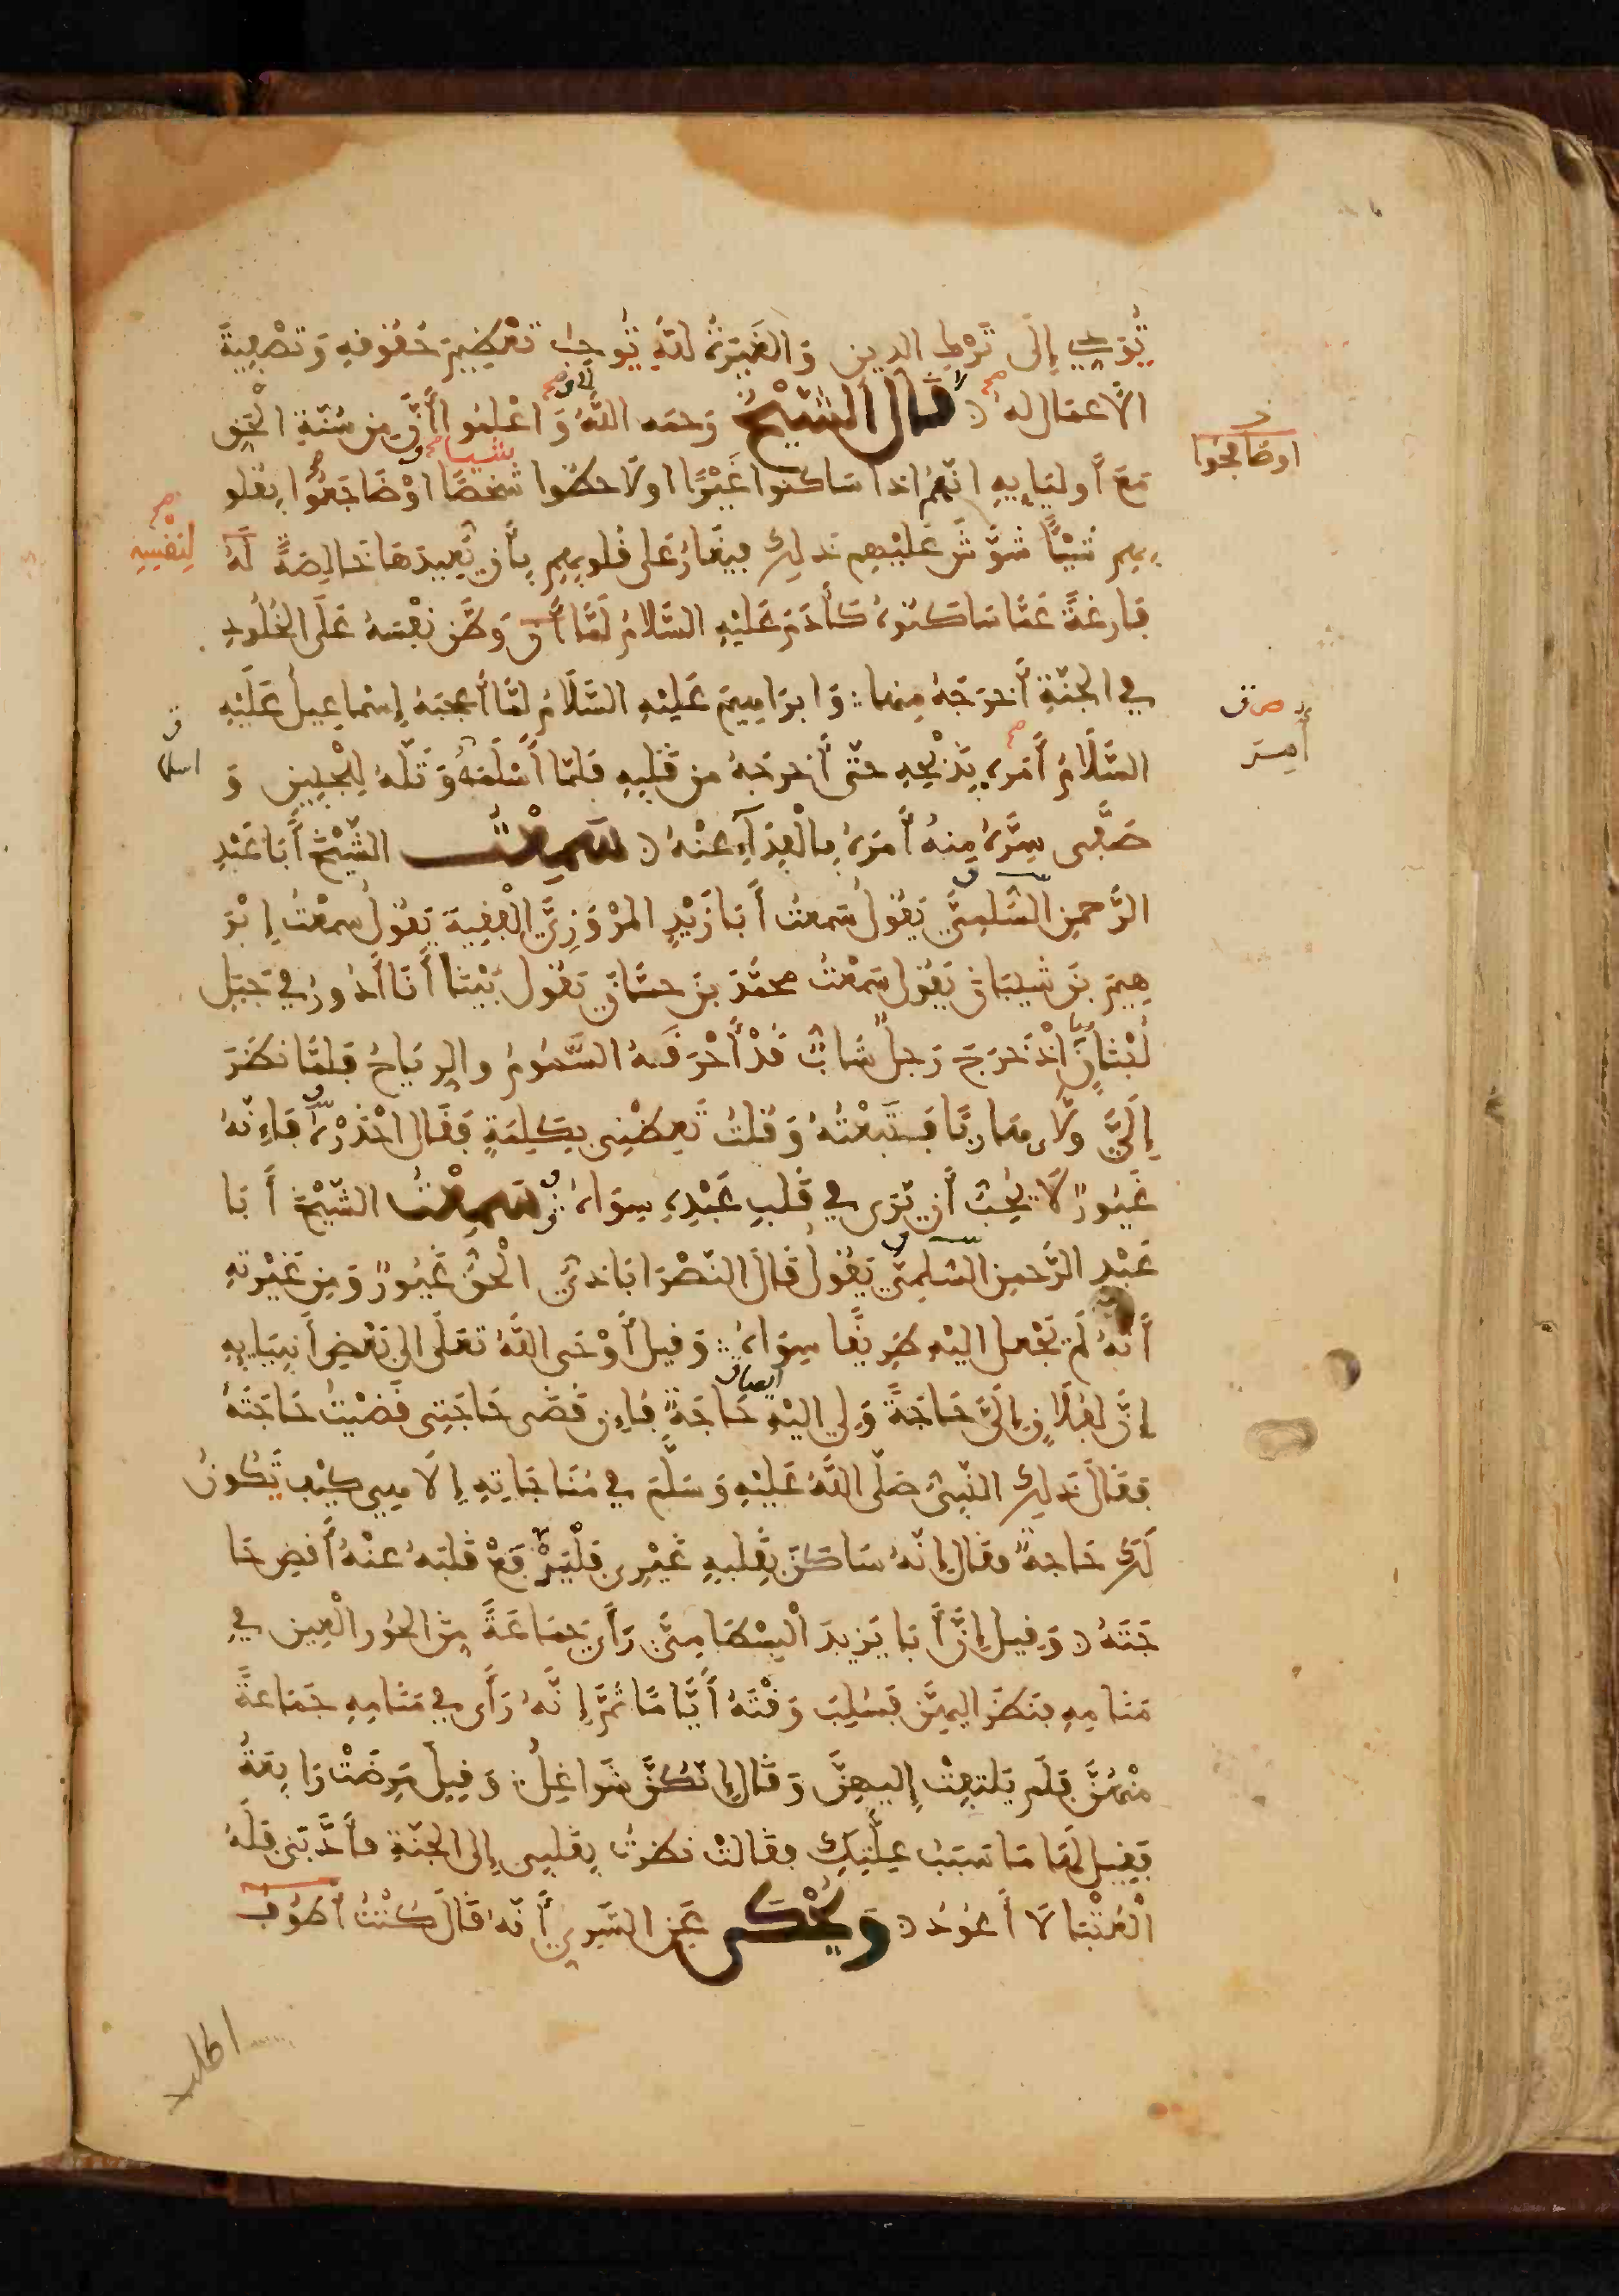 يُؤَدِّي إِلَى تَرْكِ الدين وَالغَيْرَةُ للهِ تُوجِبُ تَعْظِيمَ حُقُوقِهِ وَتَصْفِيَةَ
الأعمَال له قَالَ الشَّيْخُ رحمه اللهُ وَاعْلَمُوا أَنَّ مِن سُنَّةِ الْحَقِّ
مَعَ أَوليَايِهِ انَّهُمُ اذا سَاكنوا غَيْرًا اولَاحظُوا شخصًا اوْضَاجَعُوا بِقلو
بهم شَيْئًا شَوَّشَ عَلَيْهِم ذلِكَ فيَغَارُ عَلى قُلوبِهِم بِأَن يُعِيدَهَا خَالِصَةً لَهُ
فَارِغَةً عَمَّا سَاكَنُوهُ كَأدَمَ عَلَيْهِ السَّلامُ لَمَّا أن وَطَّن نَفْسَهُ عَلَى الخُلُودِ
في الجَنَّةِ أَخرَجَهُ مِنهَا وَابرَاهِيمَ عَلَيْهِ السَّلَامُ لَمَّا أَعجَبَهُ إِسْمَاعِيلُ عَلَيْهِ
السَّلَامُ أَمَرهُ بِذَبْحِهِ حتَّى أَخرجَهُ من قَلبِهِ فَلمَّا أَسْلَمَهُ وَتَلَّهُ لِلْجَبِينِ وَ
صَفَّى سِرَّهُ مِنهُ أَمَرَهُ بِالْفِدَآءِ عنْهُ سَمِعْتُ الشَّيْخَ أَبَا عَبْدِ
الرَّحمنِ السُّلَمِيَّ يَقُولُ سَمعتُ أَبَا زَيْدٍ المَرْوَزِيَّ الْفقِيهَ يَقُولُ سمعْتُ إِبْرَ
هِيمَ بنَ شَيبَانَ يَقُولُ سَمِعْتُ محمَّدَ بنَ حسَّانَ يَقُولُ بَيْنَا أَنَا أَدُورُ في جَبَلِ
لُبْنَانَ إِذْ خَرَجَ رَجلٌ شَابٌّ قَدْ أَحْرَقَتهُ السَّمُومُ والرِيَاحُ فَلمَّا نَظَرَ
إِلَيَّ ولَّى هَارِبًا فَتَبِعْتُهُ وَقُلتُ تَعِظُنِى بِكَلِمَةٍ فَقَالَ احْذَرْهُ فَإِنّهُ
غَيُورٌ لَا يُحِبُّ أَن يَرَى في قَلبِ عَبْدِهِ سِوَاهُ سَمِعْتُ الشَّيْخَ أَبَا
عَبْدِ الرَّحمنِ السُّلَمِيَّ يَقُولُ قَالَ النَّصْرَابَاذيُّ الْحَقُّ غَيُورٌ وَمِن غَيْرَتِهِ
أَنَّهُ لَمْ يَجْعَل اليْهِ طَرِيقًا سِوَاهُ وَقيلَ أَوْحَى اللهُ تَعَلَى الى بَعْضِ أَنبِيَايِهِ
إِنَّ لِفُلَانٍ إِلَيَّ حَاجَةً وَلِي اليْهِ حَاجَةٌ فَإِن قَضَى حَاجَتِى قَضَيْتُ حَاجَتَهُ
فَقَالَ ذلِكَ النَّبِيُّ صَلَّى اللهُ عَلَيْهِ وَسَلَّمَ في مُنَاجَاتِهِ إِلَاهِي كَيْفَ يَكُونُ
لَكَ حَاجةٌ فقَالَ إِنَّهُ سَاكَنَ بِقَلبِهِ غَيْرِى فَلْيُفَرِّغْ قَلبَهُ عنْهُ أَقضِ حَا
جَتَهُ وَقِيلَ إِنَّ أَبَا يَزِيدَ الْبِسْطَامِيَّ رَأَى جَمَاعَةً مِنَ الحُورِ الْعِينِ فِي
مَنَامِهِ فنَظَرَ اليهِنَّ فَسُلِبَ وَقْتَهُ أَيَّامًا ثُمَّ إِنَّهُ رَأَى في مَنَامِهِ جَمَاعةً
مِنْهُنَّ فَلَم يَلتفِتْ إِلَيهِنَّ وَقَالَ إِنَّكُنَّ شَوَاغِلُ وَقِيلَ مَرِضَتْ رَابِعَةُ
فَقيلَ لَهَا مَا سَبَبُ عِلَّتِكِ فقَالَتْ نَظَرتُ بِقَلبِى إِلى الجَنَّةِ فَأَدَّبَنى فَلَهُ
الْعُتْبَا لَا أَعُودُ وَيُحْكَى عَنِ السَّرِيِّ أَنَّهُ قَالَ كُنْتُ أَطْوفُ
اوصَافحُوا
لِنَفْسِهِ
أُمِرَ
اطلب